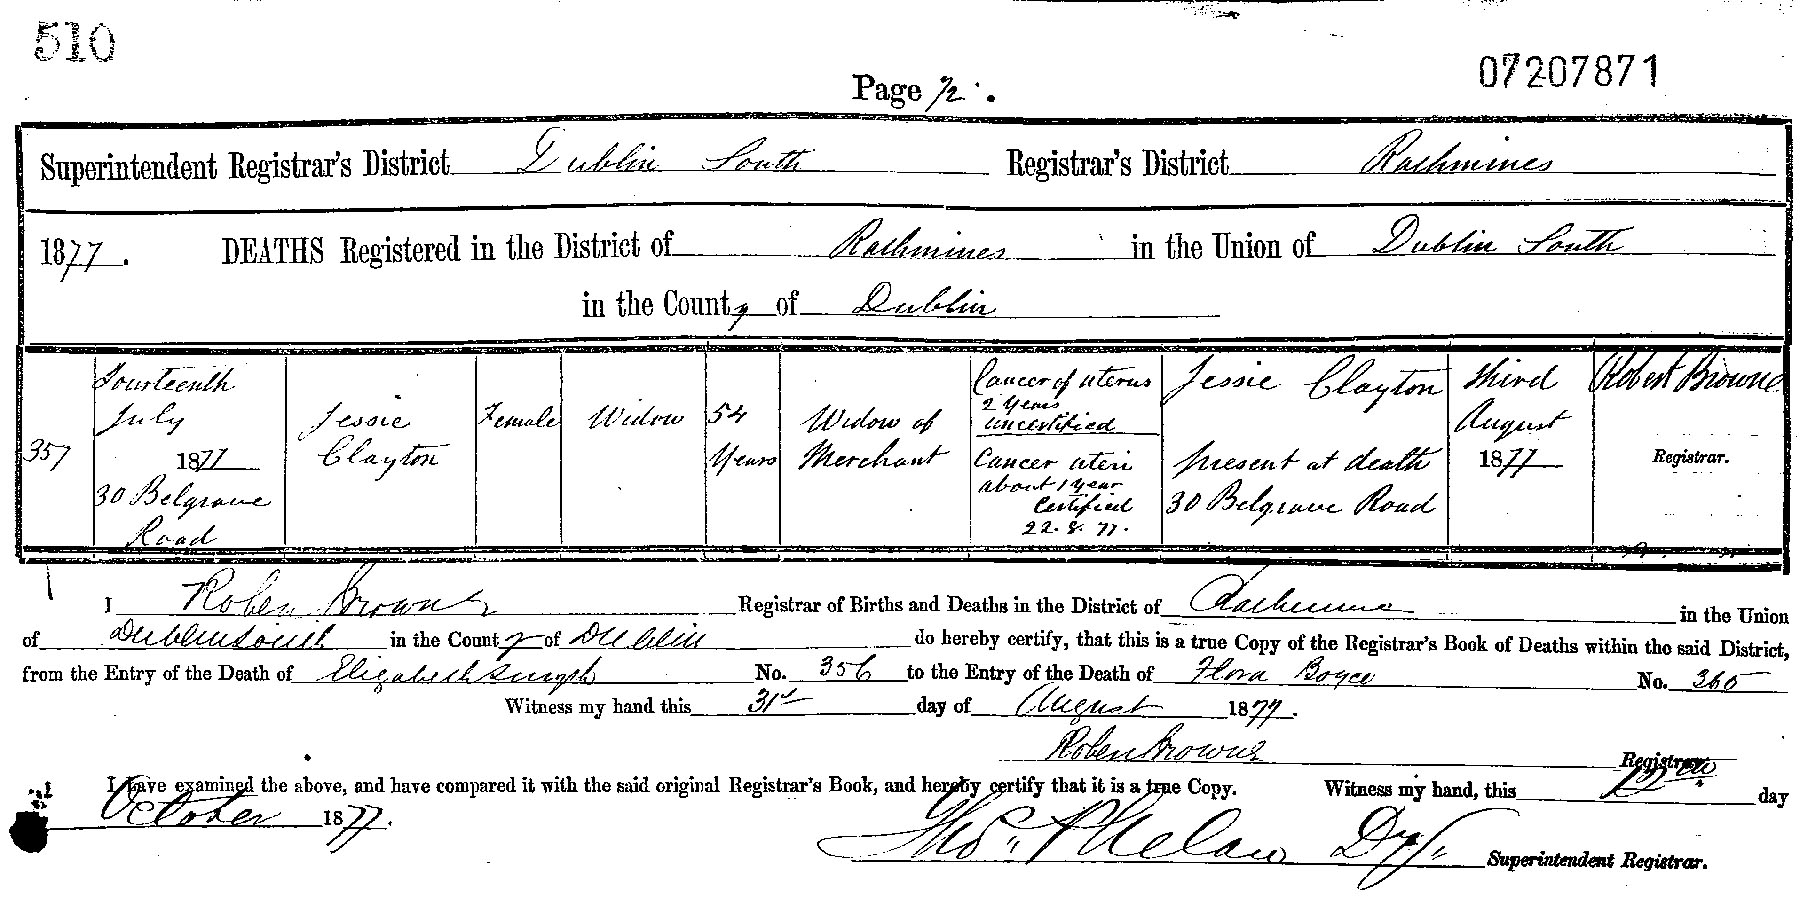 510
07207871
Page 72.
Superintendent Registrar's District Dublin South Registrar's District Rathmines
1877. DEATHS Registered in the District of Rathmines in the Union of Dublin South
in the County of Dublin
357
Fourteenth
July
1877
30 Belgrave
Road
Jessie
Clayton
Female
Widow
54
Years
Widow of
Merchant
Cancer of uterus
2 Years
uncertified
Cancer uteri
about 1 year
Certified
22.8.77.
Jessie Clayton
present at death
30 Belgrave Road
Third
August
1877
Robert Browne
Registrar.
I Robert Browne Registrar of Births and Deaths in the District of Rathmines in the Union
of Dublin South in the County of Dublin do hereby certify, that this is a true Copy of the Registrar's Book of Deaths within the said District,
from the Entry of the Death of Elizabeth No. 356 to the Entry of the Death of Flora Boyce No. 360
Witness my hand this 31st day of August 1877.
Robert Browne Registrar.
I have examined the above, and have compared it with the said original Registrar's Book, and hereby certify that it is a true Copy. Witness my hand, this day
October 1877.
Thos. Phelan Dy. Superintendent Registrar.